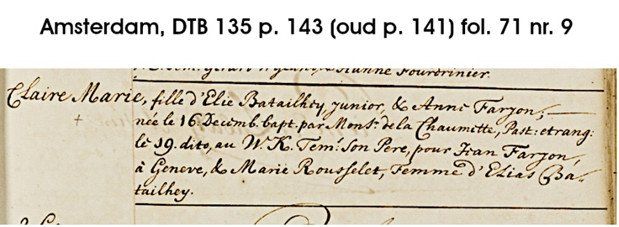 Amsterdam, DTB 135 p. 143 (oud p. 141) fol. 71 nr. 9
Fourdrinier.
Claire Marie, fille d'Elie Batailhey junior, & Anne Faryon,
née le 16 Decemb. bapt. par Mons.r de la Chaumitte, Past: etrang:
le 19. dito, au W. K. Tem: Son Pere, pour Jean Faryon,
à Geneve, & Marie Rousselet, Femme d'Elias Ba-
tailhey.